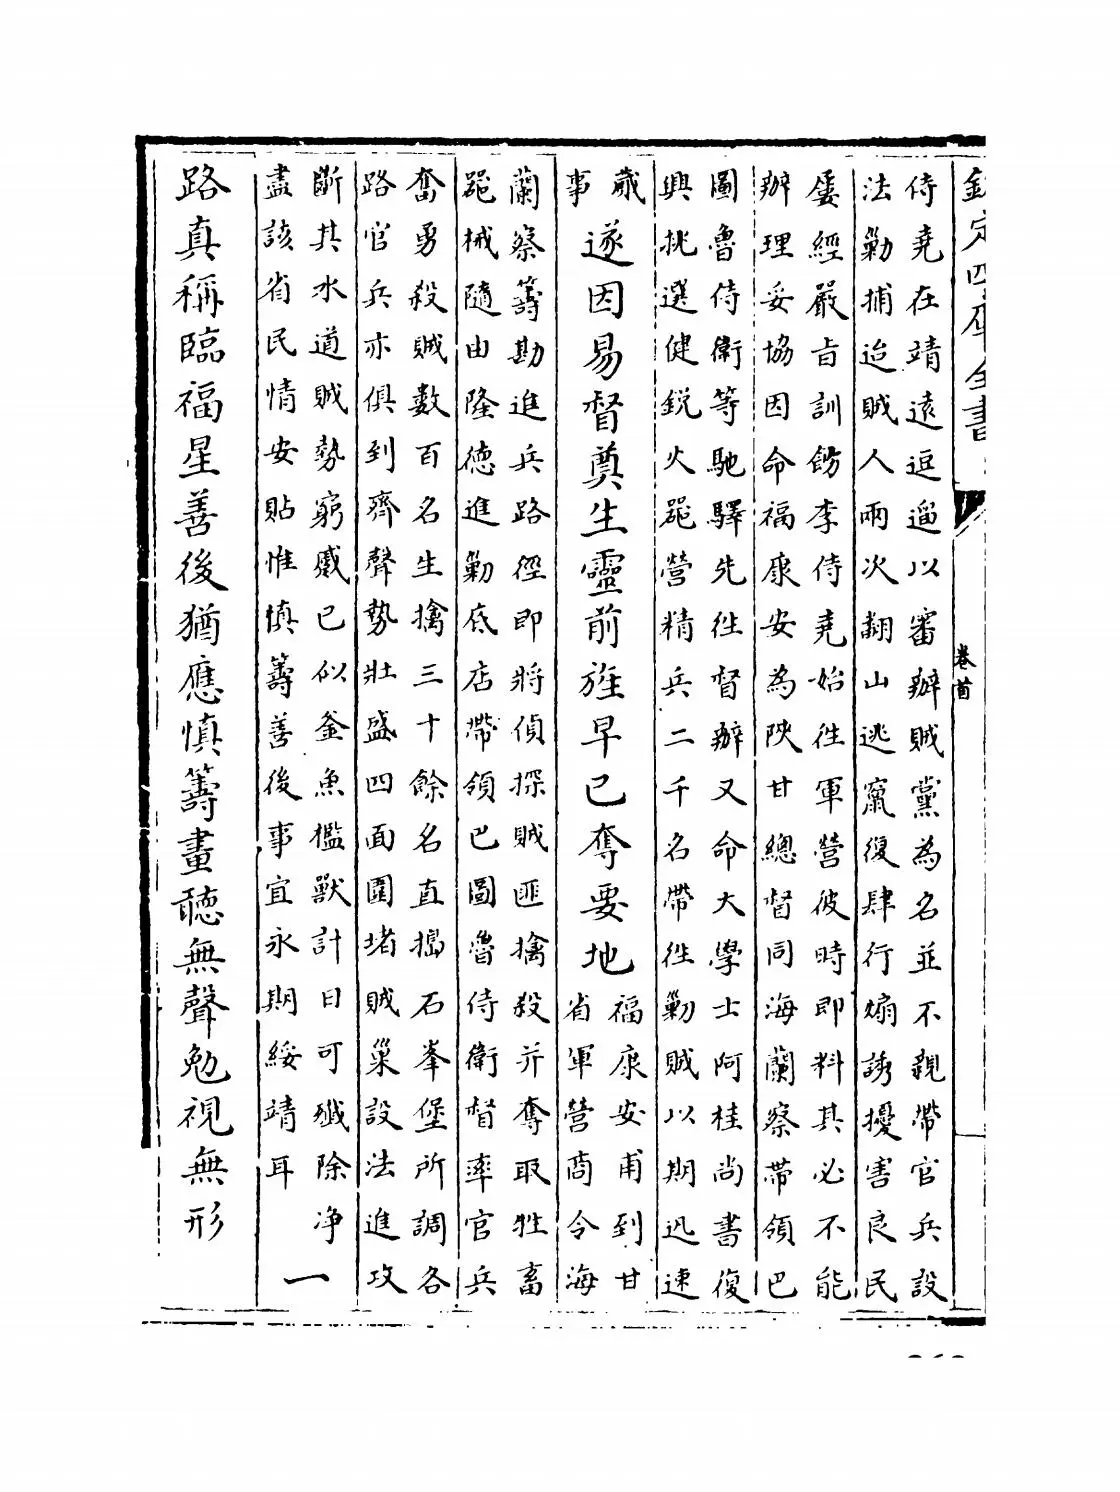 欽定四庫全書
卷首
侍堯在靖遠逗遛以審辦賊黨為名並不親帶官兵設
法勦捕迨賊人兩次翻山逃竄復肆行煽誘擾害良民
屢經嚴旨訓飭李侍堯始往軍營彼時即料其必不能
辦理妥協因命福康安為陜甘總督同海蘭察帶領巴
圖魯侍衛等馳驛先往督辦又命大學士阿桂尚書復
興挑選健銳火器營精兵二千名帶往勦賊以期迅速
蕆
事
遂因易督奠生靈前旌早已奪要地
福康安甫到甘
省軍營商令海
蘭察籌勘進兵路徑即將偵探賊匪擒殺并奪取牲畜
器械隨由隆德進勦底店帶領巴圖魯侍衛督率官兵
奮勇殺賊數百名生擒三十餘名直搗石峯堡所調各
路官兵亦俱到齊聲勢壯盛四面圍堵賊巢設法進攻
斷其水道賊勢窮蹙已似釜魚檻獸計日可殲除净
盡該省民情安貼惟慎籌善後事宜永期綏靖耳
一
路真稱臨福星善後猶應慎籌畫聽無聲勉視無形